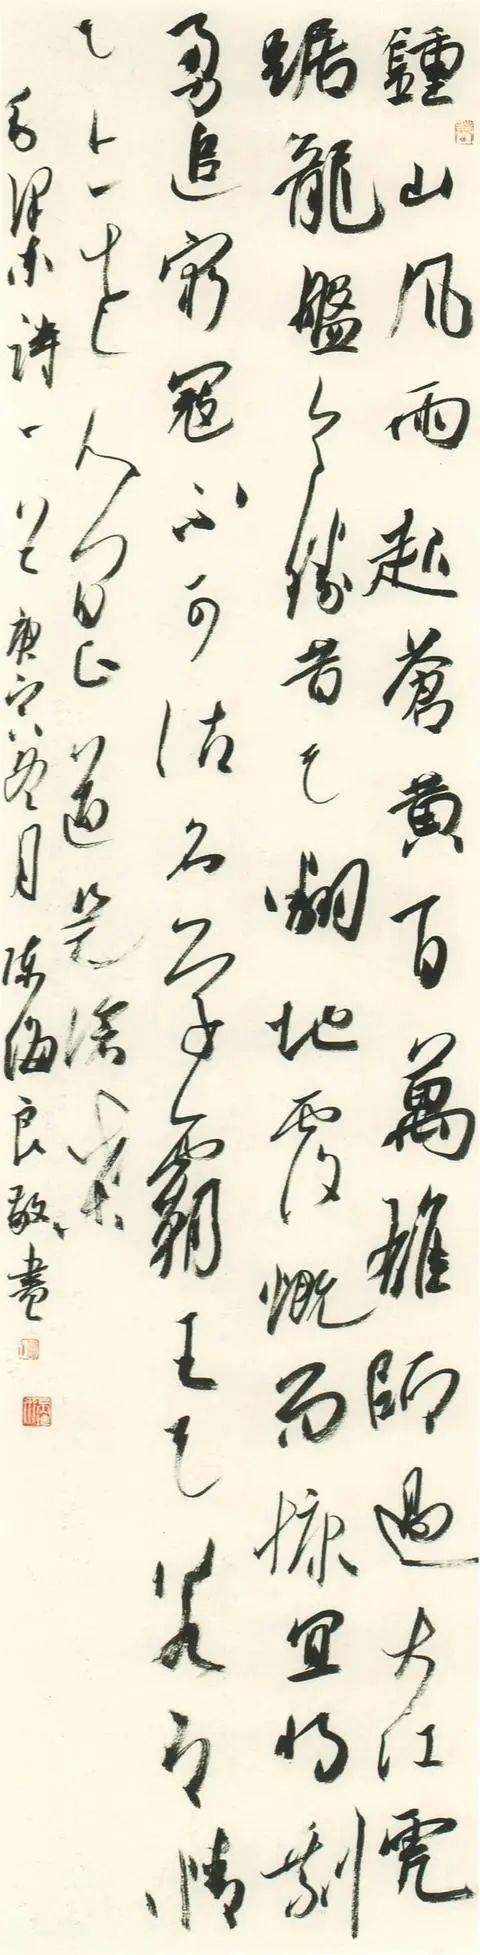 鍾山風雨起蒼黃百萬雄師過大江虎
踞龍盤今勝昔天翻地覆慨而慷宜將剩
勇追窮寇不可沽名學霸王天若有情
天亦老人間正道是滄桑
毛澤東詩一首 庚寅冬月 陳海良敬書